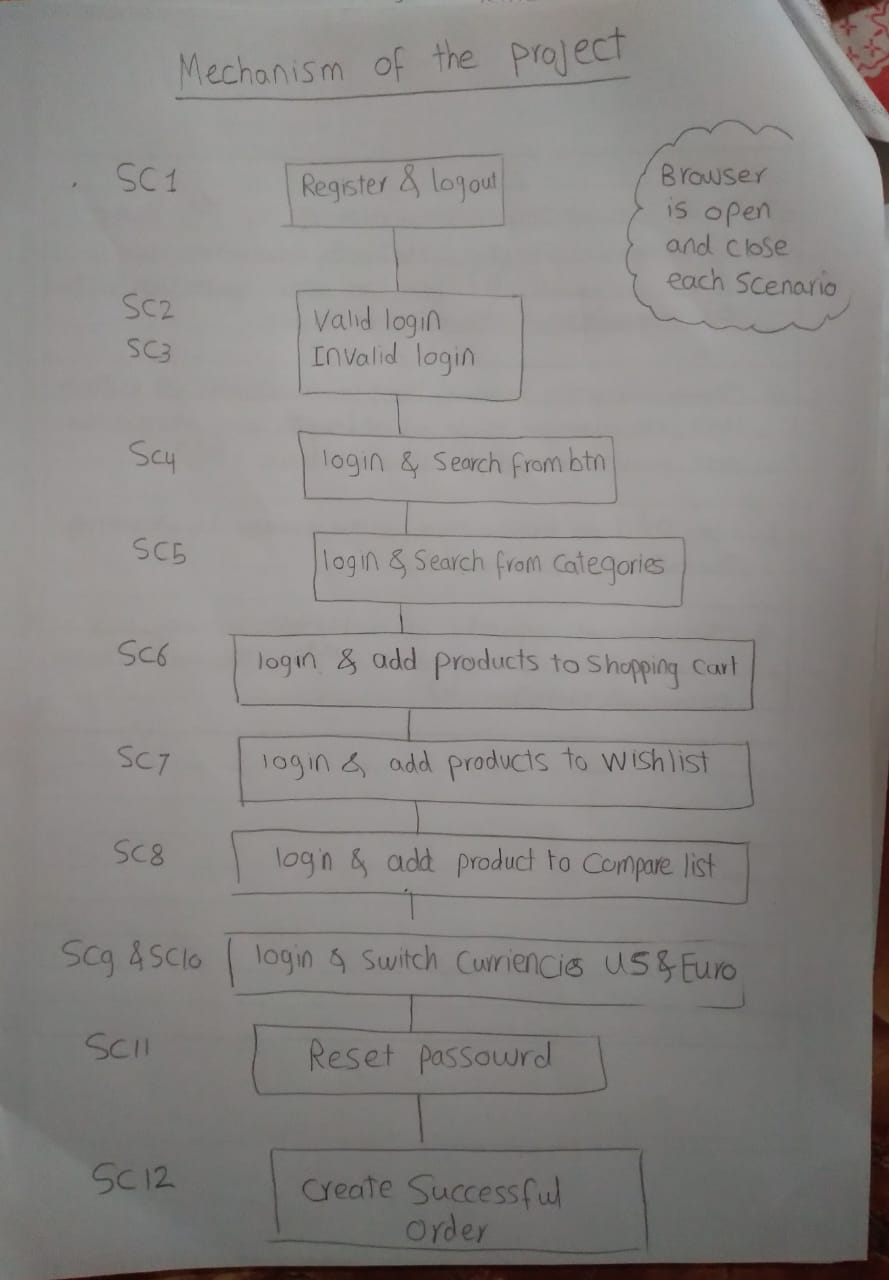 Mechanism of the project
SC1
Register & logout
Browser
is open
and close
each Scenario
SC2
Valid login
SC3
Invalid login
SC4
login & Search from btn
SC5
login & Search from Categories
SC6
login & add products to Shopping Cart
SC7
login & add products to Wishlist
SC8
login & add product to Compare list
SC9 & SC10
login & Switch Curriencies US & Euro
SC11
Reset passowrd
SC12
Create Successful
Order